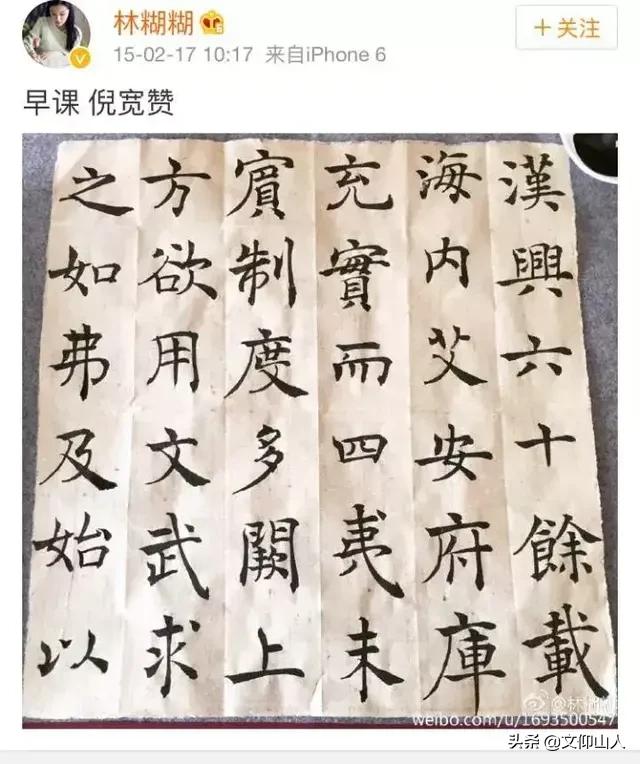 林糊糊
+关注
15-02-17 10:17 来自iPhone 6
早课 倪宽赞
漢興六十餘載
海内艾安府庫
充實而四夷未
賓制度多闕上
方欲用文武求
之如弗及始以
weibo.com/u/1693500547
头条@文仰山人